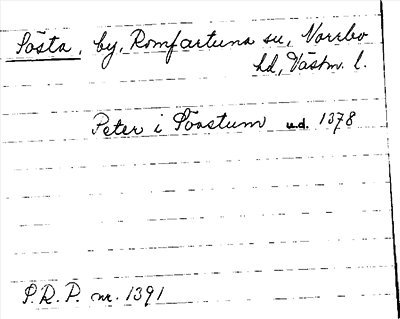 Sösta, by, Romfartuna sn, Norrbo
hd, Västm. l.
Peter i Söostum ud. 1378
P.R.P. nr. 1391